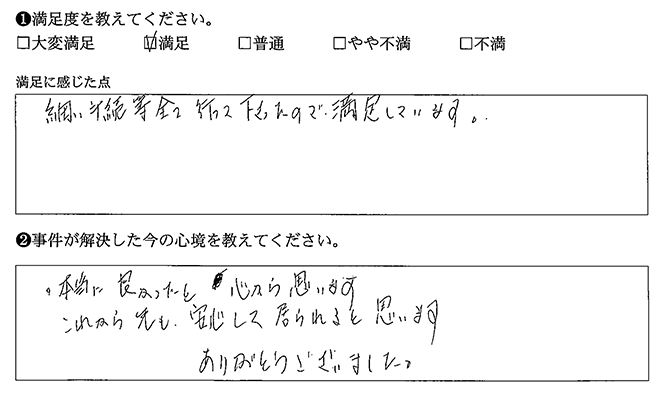 ❶満足度を教えてください。
□大変満足 ☑満足 □普通 □やや不満 □不満
満足に感じた点
細い手続等全て行って下さったので、満足しています。
❷事件が解決した今の心境を教えてください。
本当に良かったと心から思います
これから先も、安心して居られると思います
ありがとうございました。